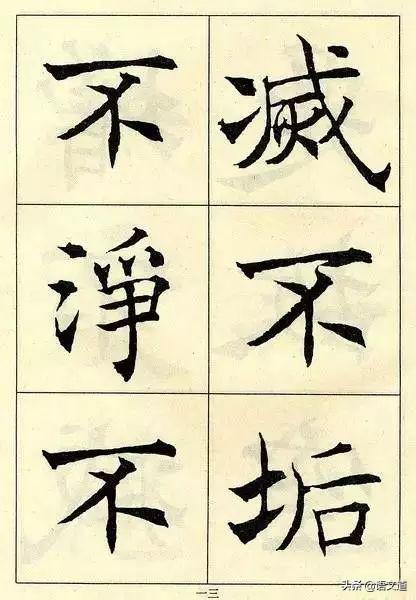 滅不垢
不淨不
一三
头条 @语文道